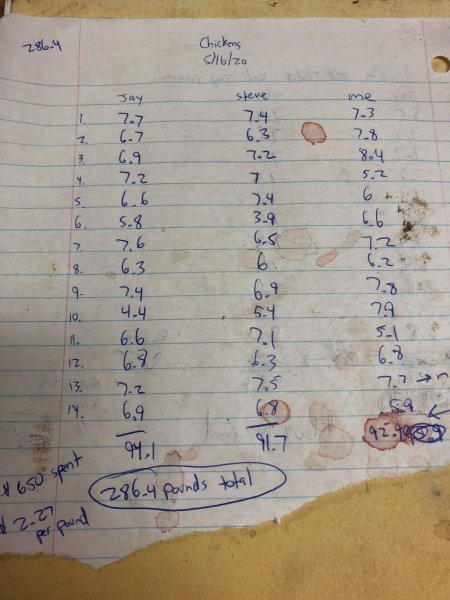 286.4 Chickens
5/16/20
Jay steve me
1. 7.7 7.4 7.3
2. 6.7 6.3 7.8
3. 6.9 7.2 8.4
4. 7.2 7 5.2
5. 6.6 7.4 6
6. 5.8 3.9 6.6
7. 7.6 6.5 7.2
8. 6.3 6 6.2
9. 7.4 6.9 7.8
10. 4.4 5.4 7.9
11. 6.6 7.1 5.1
12. 6.8 6.3 6.8
13. 7.2 7.5 7.7 →
14. 6.9 6.8 5.9
94.1 91.7
$ 650 spent
286.4 pounds total
2.27
per pound